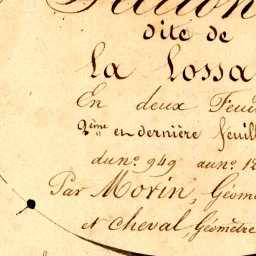 dite de
La Lossa
En deux Feui
2ème et dernière feuill
du nº 949 au nº 12
Par Morin, Géom
et Cheval, Géomètre